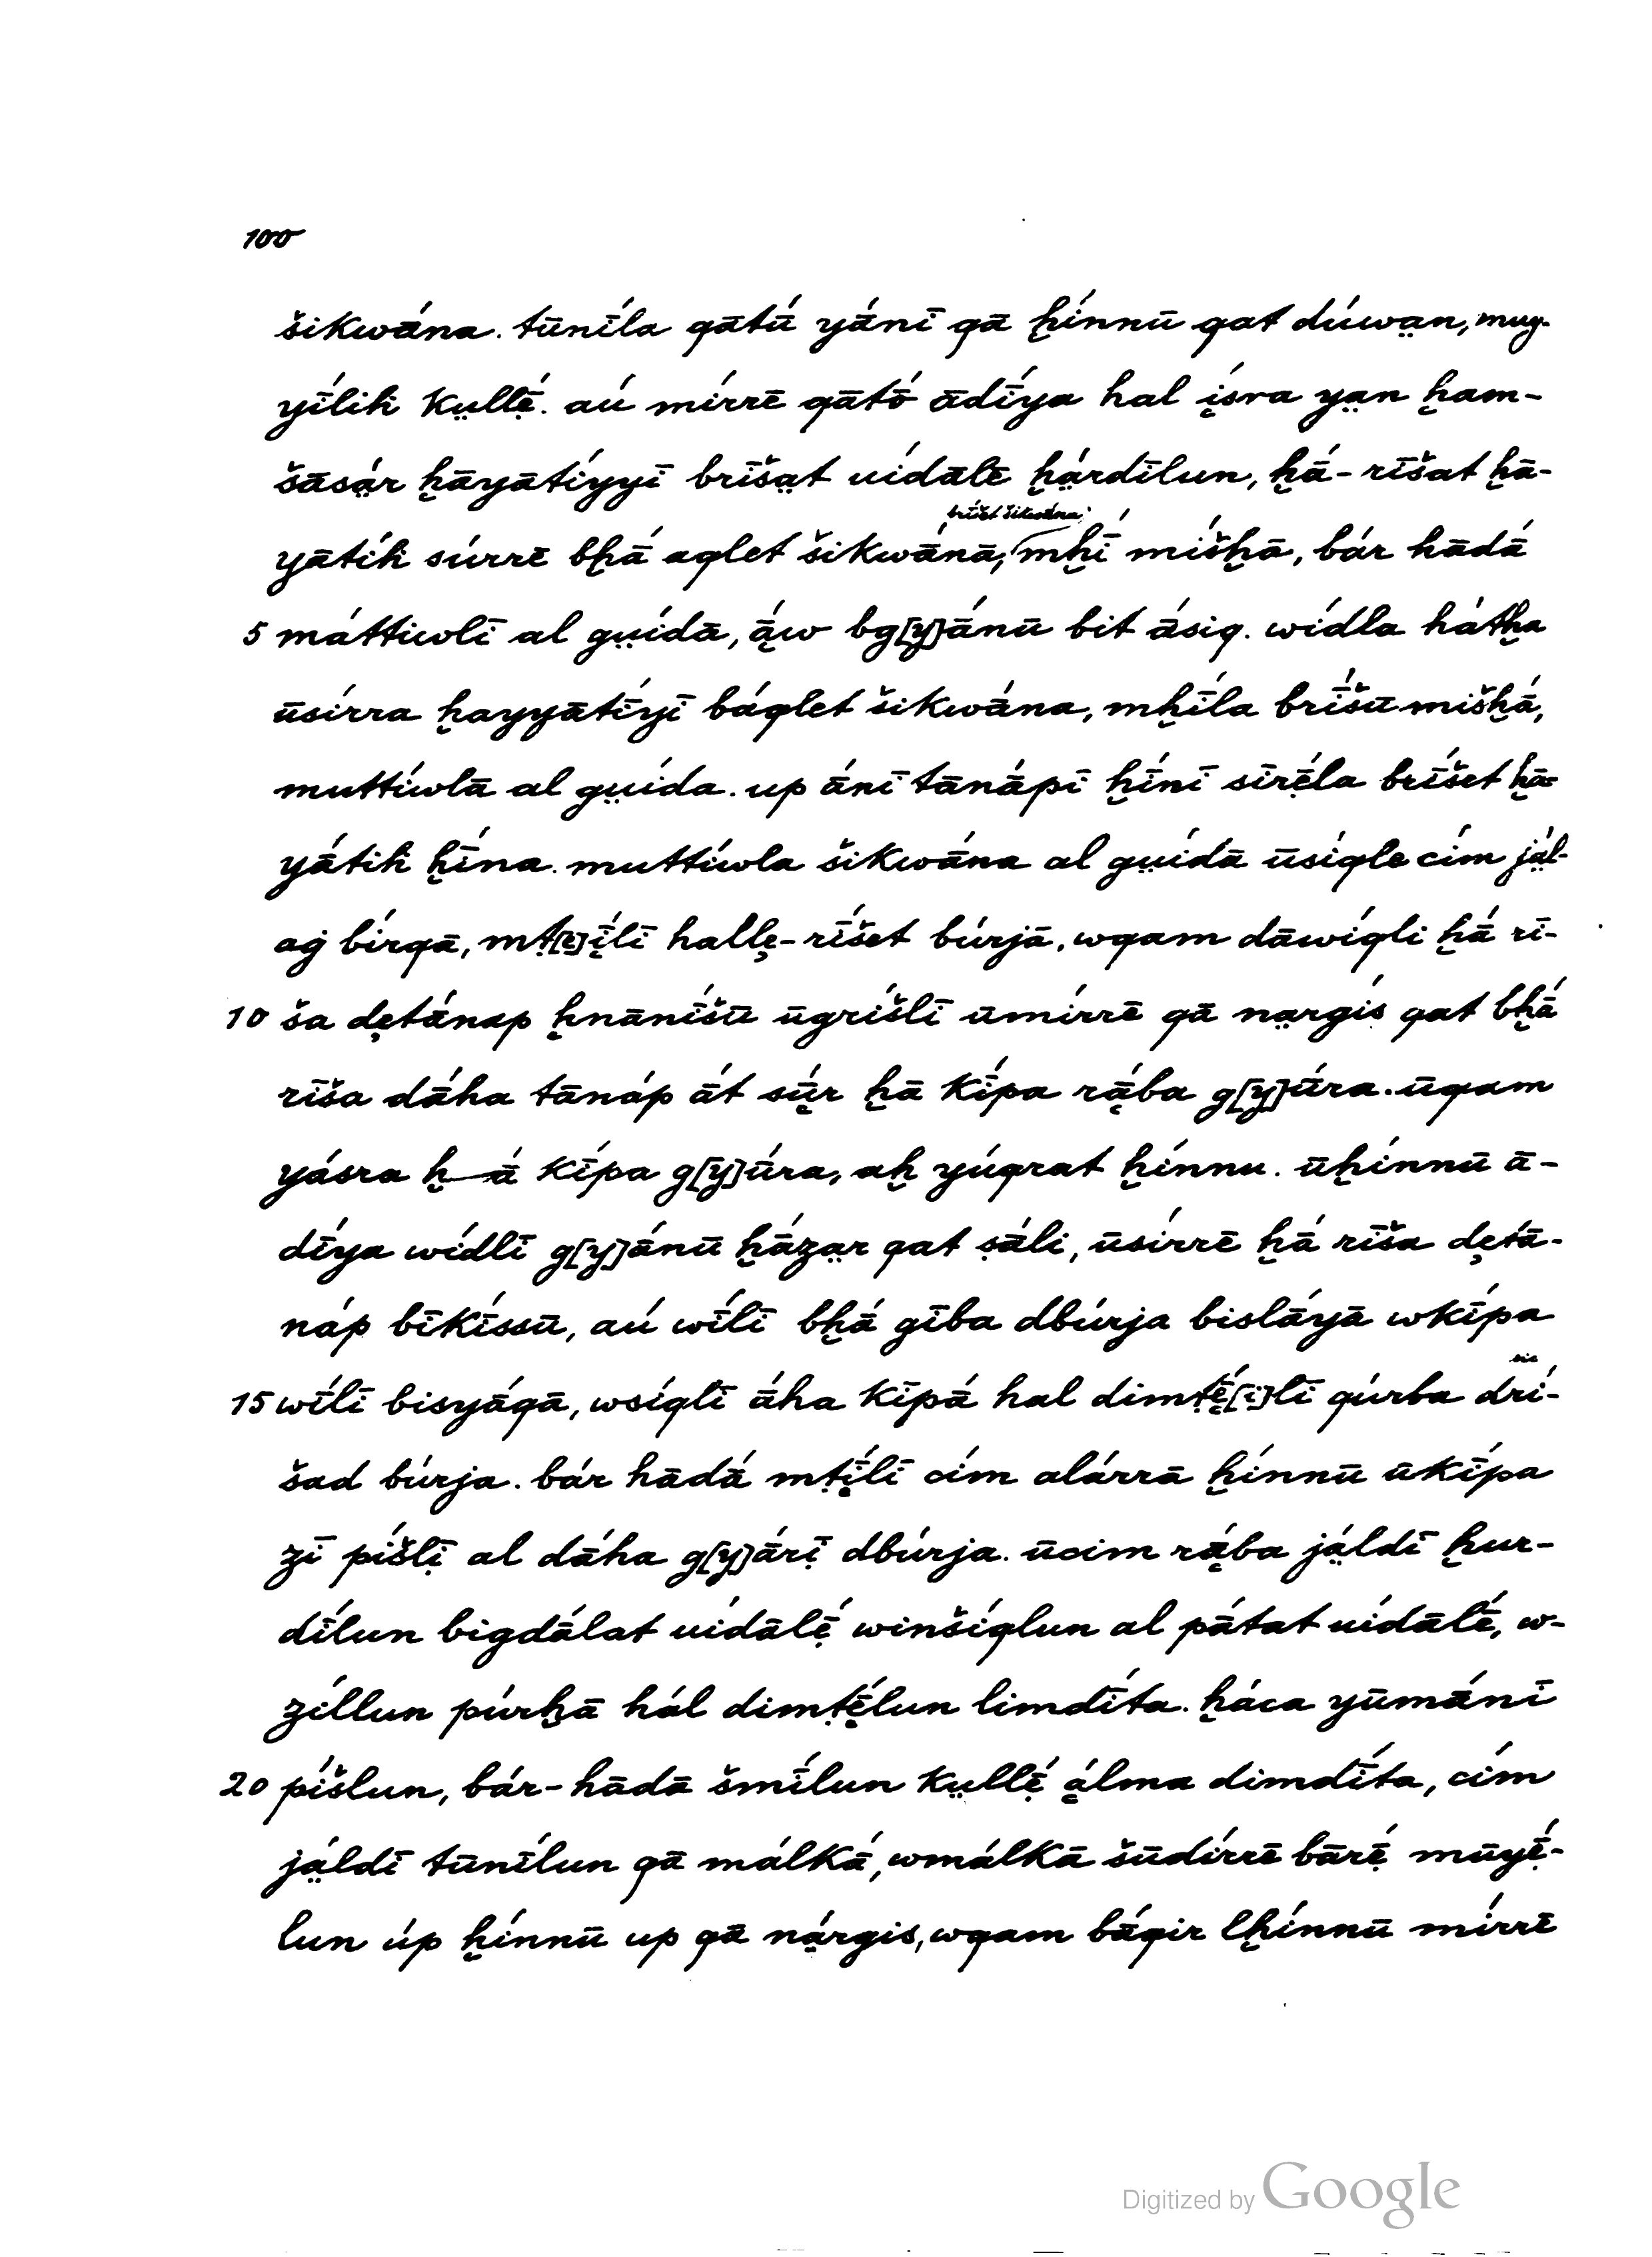 100
šikwā́na. tūnī́la qātū́ yā́nī qā ḫínnū qat dúwa̤n, mug-
yī́lih̄ kṳllẹ̄́. aú mírrē qātō̄́ ādī́ya hal i̮ísra ya̤n ḫam-
šāsá̤r ḫāyātíyyī brīša̤t uídālē ḫá̤rdīlun, ḫā́-rīšat ḫā-
brī́šet šikwā́na;
yātíh̄ súrrē bḫā́ aqlet šikwā́nā, mḫī́ mišḫā, bár hādā́
5 máttiwlī al gṳídā, ā̮́w bg[y]ā́nū bit ā́siq. wídla hátḫa
ūsírra ḫayyātī́yī bā́qlet šikwā́na, mḫī́la brī́šū mišḫā́,
muttíwlā al gṳída. up ā́nī tānā́pī ḫī́nī sīrẹ̄́la brī́šet ḫā-
yā́tih̄ ḫī́na. muttíwla šikwā́na al gṳídā ūsíqle cím já̤l-
aġ bírqā, mṭ[e]i̮ī́lī hallȩ-rī́šet búrjā, wqam dāwíqli ḫā́ rī-
10 ša dȩtā́nap ḫnānī́šū ūgríšlī ūmírrē qā na̤rgís qat bḫā́
rīša dā́ha tānáp ā́t sū̮́r ḫā kī́pa rā̮́ba g[y]ū́ra. ūqam
yásra ḫ—ā́ kī́pa g[y]ū́ra, aḫ yúqrat ḫínnu. ūḫínnū ā-
dī́ya wídlī g[y]ā́nū ḫā́za̤r qat ṣā́li, ūsírrē ḫā́ rīša dȩtā-
náp bīkíssū, aú wī́lī bḫā́ gība dbúrja bislā́yā wkī́pa
sic
15 wī́lī bisyā́qā, wsíqlī ā́ha kīpā́ hal dimṭẹ̄́[i]lī qúrba drí-
šad búrja. bár hādā́ mṭī̮́lī cím alárrā ḫínnū ūkī́pa
zī píšlị̄ al dā́ha g[y]ā́rị̄ dbúrja. ūcim rā̮́ba já̤ldī ḫur-
dī́lun bigdā́lat uídālẹ̄́ winšíqlun al pā́tat uídālẹ̄́, w-
zíllun púrḫā hál dimṭẹ̄́lun limdī́ta. ḫáca yūmā́nī
20 píšlun, bár-hādā šmī́lun kṳllẹ̄́ á̮lma dimdī́ta, cím
já̤ldī tūnī́lun qā málkā́, wmálkā šūdírrē bārẹ̄́ mūyẹ̄́-
lun úp ḫínnū up qā ná̤rgis, wqam bā́qir lḫínnū mírrē
Digitized by Google